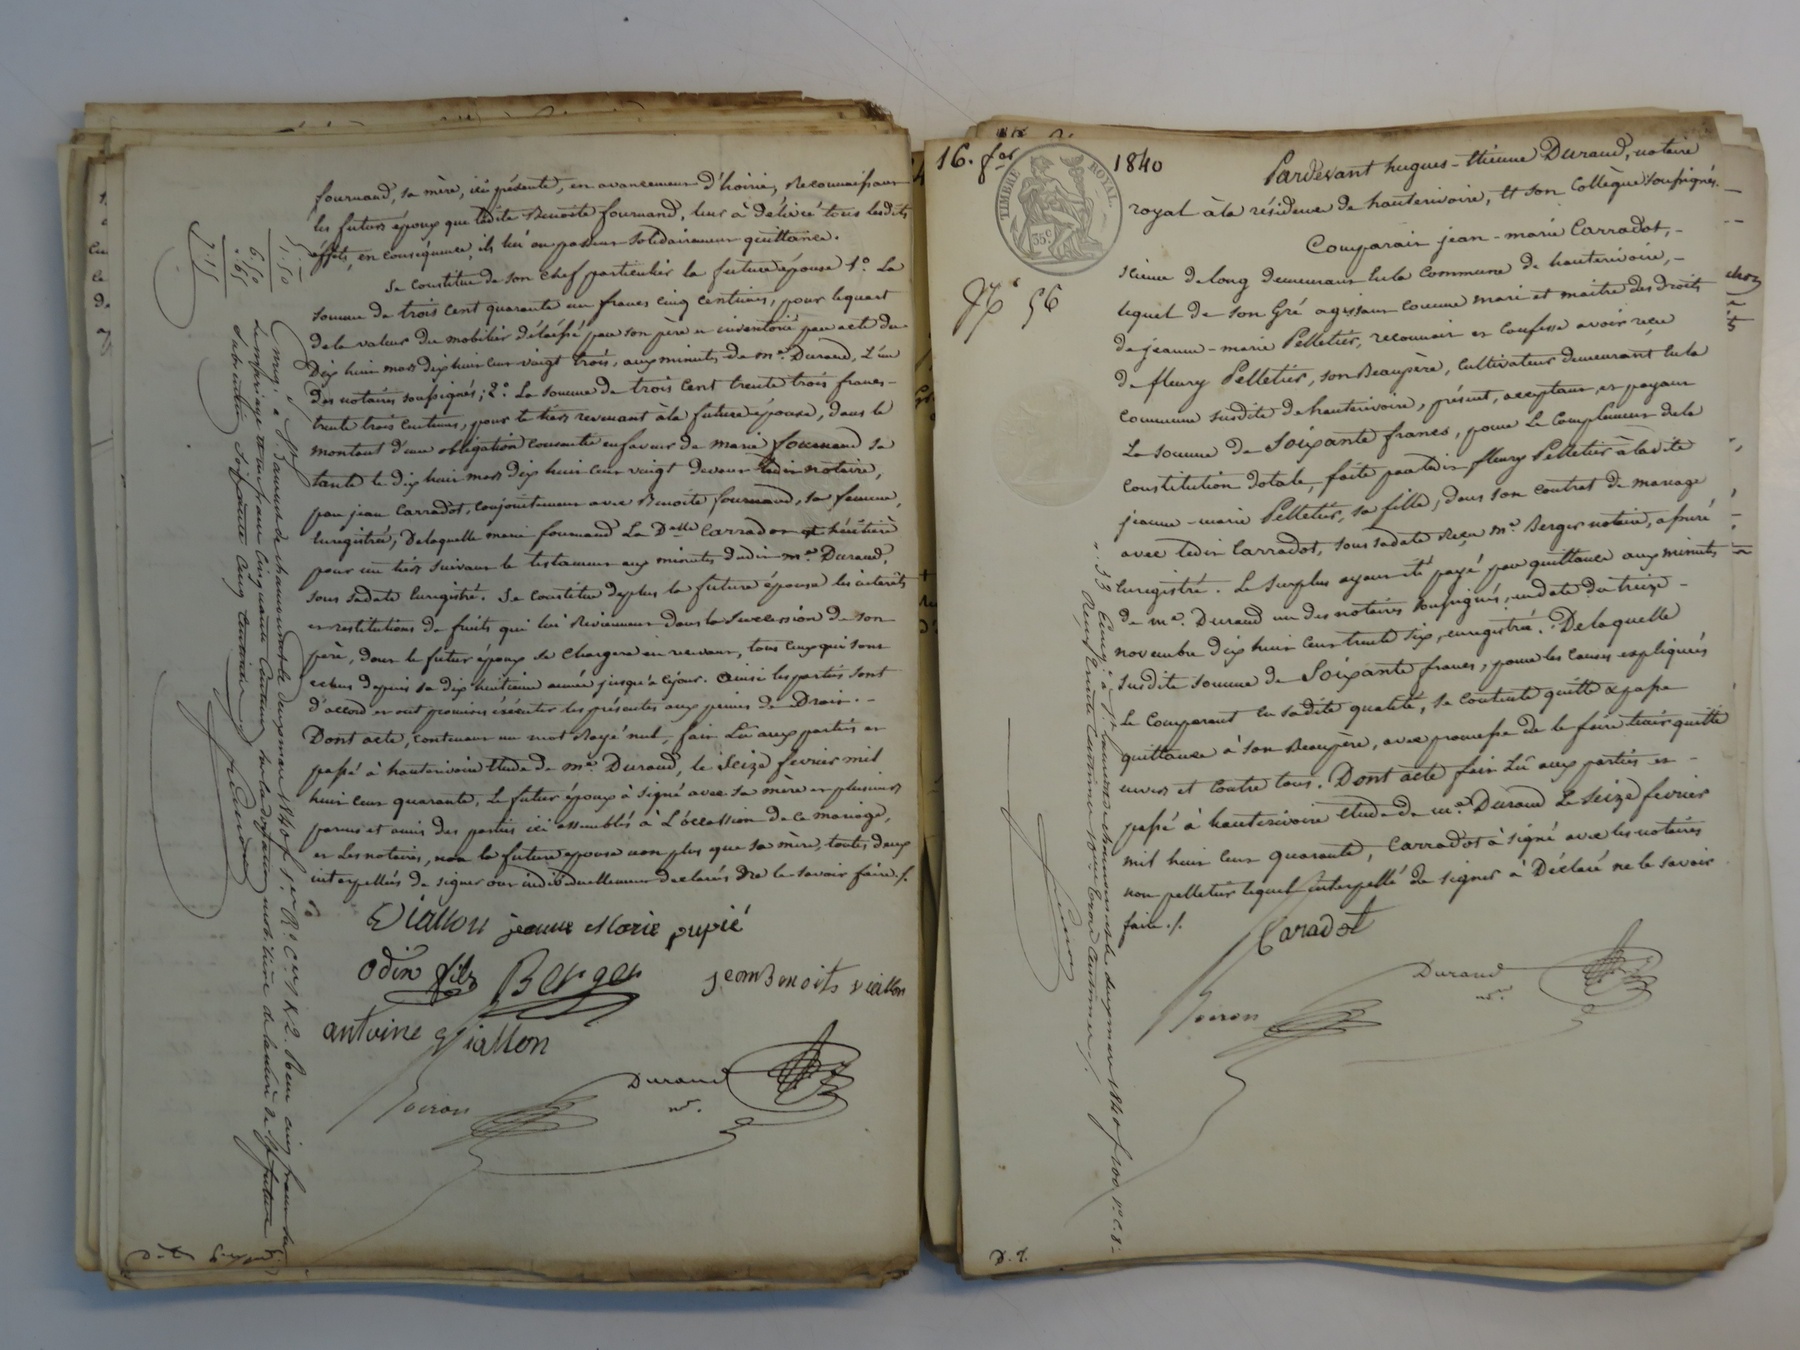 fournand, sa mère, ici présente, en avancement d'hoirie, Reconnaissant
les futurs époux que ledite Benoite fournand, leur à délivré tous lesdits
effets, en conséquence, ils lui en passent solidairement quittance.
Se constitue de son chef particulier la future épouse 1.° La
somme de trois cent quarante un francs cinq centimes, pour le quart
de la valeur du mobilier délaissé par son père et inventorié par acte du
Dix huit mars dix huit cent vingt trois, aux minutes de me. Durand, L'un
des notaires soussignés; 2.° La somme de trois cent trente trois francs-
trente trois centimes, pour le tiers revenant à la future épouse, dans le
montant d'une obligation consentie en faveur de marie fournand sa
tante le dix huit mars dix huit cent vingt devant ledit notaire,
par jean Carradot, conjointement avec Benoite fournand, sa femme,
Enregistrée, De laquelle marie fournand La Delle Carradot est héritière
pour un tiers suivant le testament aux minutes dudit me. Durand,
sous sa date Enregistré. Se constitue deplus la future épouse les intérêts
et restitutions de fruits qui lui Reviennent dans la Succession de son
père, dont le futur époux se chargera en recevant, tous ceux qui sont
échus depuis sa dix huitième année jusqu'à cejour. Ainsi les parties sont
d'accord et ont promis éxécuter les présentes aux peines de Droit.-
Dont acte, contenant un mot Rayé nul, fait Lû aux parties et
passé à hauterivoire Etude de me. Durand, le Seize février mil
huit cent quarante, Le futur époux à signé avec sa mère et plusieurs
parents et amis des parties ici assemblés à L'occasion de ce mariage,
et Les notaires, non la future épouse non plus que sa mère, toutes deux
interpellées de signer ont individuellement déclarés ne le savoir faire./.
Viallon jeanne Marie pupié
odin fils Berger jean Benoits viallon
antoine Viallon
Durand
nre.
5.50
6.50
.65
7.15
16. fer
1840
TIMBRE ROYAL.
35c
56
Pardevant hugues-étienne Durand, notaire
royal à la résidence de hauterivoire, et son collègue soussignés.
Comparait jean-marie Carradot,-
scieur de long demeurant En la commune de hauterivoire,-
lequel de son Gré agissant comme mari et maitre des droits
de jeanne-marie Pelletier, reconnait et confesse avoir reçu
de fleury Pelletier, son Beaupère, cultivateur demeurant En la
commune susdite de hauterivoire, présent, acceptant et payant
La somme de Soixante francs, pour Le complement de la
constitution dotale, faite par ledit fleury Pelletier à ladite
jeanne-marie Pelletier, sa fille, dans son contrat de mariage
avec ledit Carradot, sous sa date Reçu me. Berger notaire, assuré
Enregistré. Le surplus ayant été payé par quittance aux minutes
de me. Durand un des notaires soussignés, en date du treize-
novembre dix huit cent trente six, enregistrée. De laquelle
susdite somme de Soixante francs, pour les causes expliquées
Le Comparant En sadite qualité, se contente quitte & passe
quittance à son Beaupère, avec promesse de le faire tenir quitte
envers et contre tous. Dont acte fait Lû aux parties et-
passé à hauterivoire Etude de me. Durand Le Seize fevrier
mil huit cent quarante, Carradot à signé avec les notaires
non pelletier lequel interpellé de signer à Déclaré ne le savoir
faire./.
Caradot
Durand
nre.